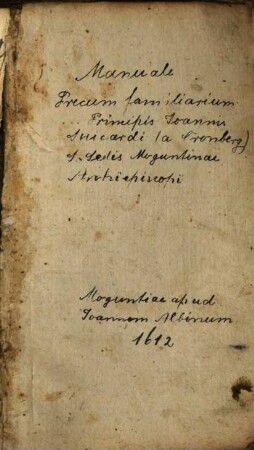 Manuale
Precum familiarium
... Principis Joannis
Suicardi (a Cronberg)
S. Sedis Moguntinae
Archiepiscopi
Moguntiae apud
Joannem Albinum
1612